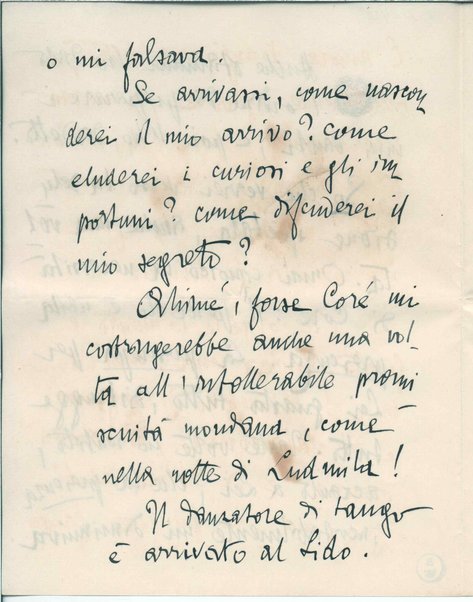 o mi falsava.
Se arrivassi, come nascon
derei il mio arrivo? come
eluderei i curiosi e gli im
portuni? come difenderei il
mio segreto?
Ahimè, forse Corè mi
costringerebbe anche una vol-
ta all'intollerabile promi
scuità mondana, come
nella notte di Ludmila!
Il danzatore di tango
è arrivato al Lido.